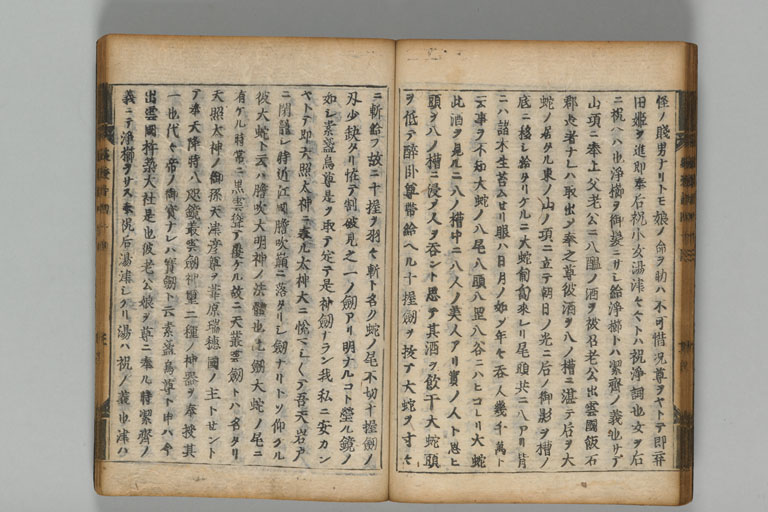 怪ノ賤男ナリトモ娘ノ命ヲ助ハ不可惜況尊ヲヤトテ即弃
旧姫ヲ進即奉后祝小女湯津セヤトハ祝浄詞也女ヲ后
ニ祝ヘハ也浄櫛ヲ御髪ニサシ給浄櫛トハ潔齊ノ義也サテ
山頂ニ奉上父老公ニ八醞ノ酒ヲ被召老公出雲國飯石
郡ノ者ナレハ取出シ奉之尊彼酒ヲ八ノ槽ニ湛テ后ヲ大
蛇ノ居タル東ノ山ノ頂ニ立テ朝日ノ光ニ后ノ御影ヲ槽ノ
底ニ移シ給タリケルニ大蛇匍匐來レリ尾頭共ニ八アリ背
ニハ諸木生苔ムセリ眼ハ日月ノ如シ年々呑人幾千萬ト
云事ヲ不知大蛇ノ八尾八頭八罡八谷ニハヒコレリ大蛇
此酒ヲ見ルニ八ノ槽中ニ八人ノ美人アリ實ノ人ト思ヒ
頭ヲ八ノ槽ニ浸ノ人ヲ呑ント思テ其酒ヲ飲干大蛇頭
ヲ低テ醉卧尊帶給ヘル十握劔ヲ抜テ大蛇ヲ寸々
ニ斬給フ故ニ十握ヲ羽々斬ト名ク蛇ノ尾不切十握劔ノ
刄少缺タリ恠テ割破見之一ノ劔アリ明ナルコト瑩ル鏡ノ
如シ素盞烏尊是ヲ取テ定テ是神劔ナラン我私ニ安カン
ヤトテ即天照太神ニ奉ル太神大ニ悦テ吾天岩戸
ニ閉籠シ時近江國膽吹嶺ニ落タリシ劔ナリトソ仰ケル
彼大蛇ト云ハ膽吹大明神ノ法體也此劔大蛇ノ尾ニ
有ケル時常ニ黒雲聳テ覆ケル故ニ天叢雲劔トハ名タリ
天照太神ノ御孫天津彦尊ヲ葦原瑞穂國ノ主トセント
テ奉天降時八咫鏡叢雲劔神璽三種ノ神器ヲ奉授其
一也代々帝ノ御寳ナレハ寳劔ト云素盞烏尊ト申ハ今
出雲國杵築大社是也彼老公娘ヲ尊ニ奉ル時潔齊ノ
義ニテ浄櫛ヲサス奉祝后湯津トクリ湯ハ祝ノ義也津ハ